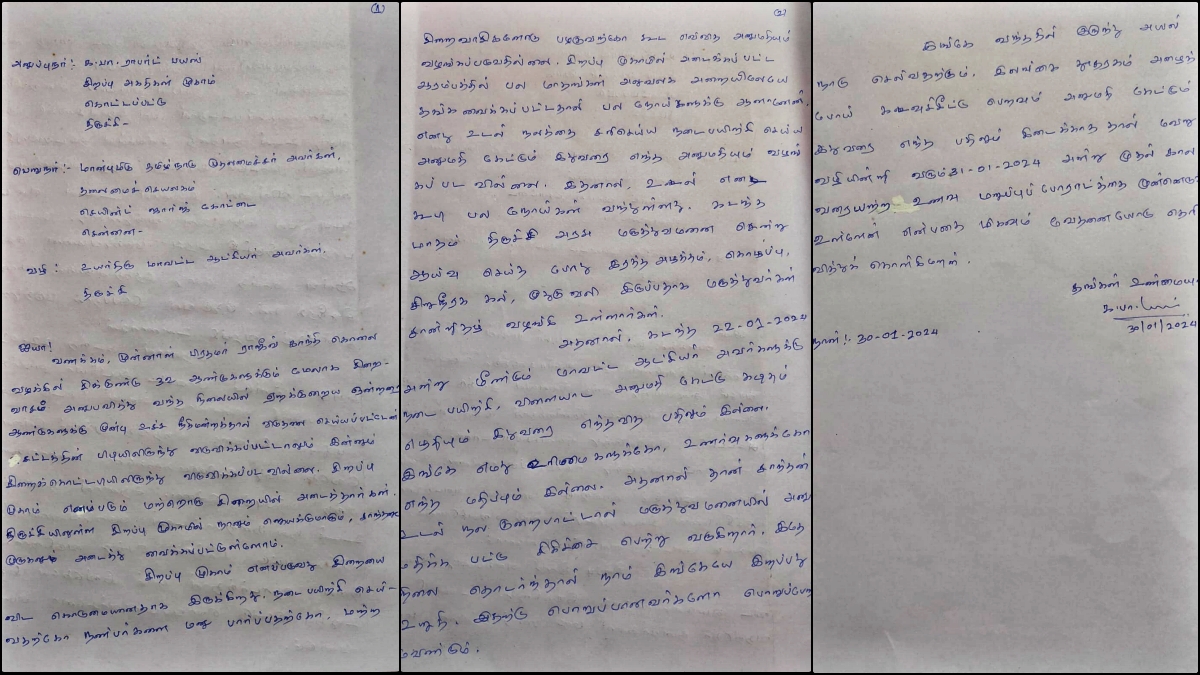 ①
அனுப்புநர் :- க.பா. ராபர்ட் பயஸ்
சிறப்பு அகதிகள் முகாம்
கொட்டப்பட்டு
திருச்சி -
பெறுநர் :- மாண்புமிகு தமிழ்நாடு முதலமைச்சர் அவர்கள்,
தலைமைச் செயலகம்
செயின்ட் ஜார்ஜ் கோட்டை
சென்னை -
வழி : உயர்திரு மாவட்ட ஆட்சியர் அவர்கள்,
திருச்சி
ஐயா!
வணக்கம், முன்னாள் பிரதமர் ராஜீவ் காந்தி கொலை
வழக்கில் சிக்குண்டு 32 ஆண்டுகளுக்கும் மேலாக சிறை-
வாசம் அனுபவித்து வந்த நிலையில் ஏறக்குறைய ஒன்றரை
ஆண்டுகளுக்கு முன்பு உச்ச நீதிமன்றத்தால் விடுதலை செய்யப்பட்டேன்
சட்டத்தின் பிடியிலிருந்து விடுவிக்கப்பட்டாலும் இன்னும்
சிறைக்கொட்டடியிலிருந்து விடுவிக்கப்பட வில்லை. சிறப்பு
முகாம் எனப்படும் மற்றொரு சிறையில் அடைத்தார்கள்.
திருச்சியிலுள்ள சிறப்பு முகாமில் நானும் ஜெயக்குமாரும், சாந்தனு
முருகனும் அடைத்து வைக்கப்பட்டுள்ளோம்.
சிறப்பு முகாம் எனப்படுவது சிறையை
விட கொடுமையானதாக இருக்கிறது. நடை பயிற்சி செய்-
வதற்கோ நண்பர்களை மனு பார்ப்பதற்கோ, மற்ற
②
சிறைவாசிகளோடு பழகுவதற்கோ கூட எவ்வித அனுமதியும்
வழங்கப்படுவதில்லை. சிறப்பு முகாமில் அடைக்கப்பட்ட
ஆரம்பத்தில் பல மாதங்கள் அலுவலக அறையிலேயே
தங்க வைக்கப்பட்டதால் பல நோய்களுக்கு ஆளானேன்.
எனது உடல் நலத்தை சரிசெய்ய நடைபயிற்சி செய்ய
அனுமதி கேட்டும் இதுவரை எந்த அனுமதியும் வழங்
கப்பட வில்லை. இதனால், உடல்
கூடி பல நோய்கள் வந்துள்ளது. கடந்த
மாதம் திருச்சி அரசு மருத்துவமனை சென்று
ஆய்வு செய்த போது இரத்த அழுத்தம், கொழுப்பு,
சிறுநீரக கல், முதுகு வலி இருப்பதாக மருத்துவர்கள்
சான்றிதழ் வழங்கி உள்ளார்கள்.
அதனால், கடந்த 22-01-2024
அன்று மீண்டும் மாவட்ட ஆட்சியர் அவர்களுக்கு
நடை பயிற்சி, விளையாட அனுமதி கேட்டு கடிதம்
எழுதியும் இதுவரை எந்தவித பதிலும் இல்லை.
இங்கே எமது உரிமைகளுக்கோ, உணர்வுகளுக்கோ
எந்த மதிப்பும் இல்லை. அதனால் தான் சாந்தன்
உடல் நல குறைபாட்டால் மருத்துவமனையில் அனு
மதிக்க பட்டு சிகிச்சை பெற்று வருகிறார். இதே
நிலை தொடர்ந்தால் நாம் இங்கேயே இறப்பது
உறுதி. இதற்கு பொறுப்பானவர்களோ பொறுப்பேற
வேண்டும்.
இங்கே வந்ததில் இருந்து அயல்
நாடு செல்வதற்கும், இலங்கை தூதரகம் அழைத்
போய் கடவுச்சீட்டு பெறவும் அனுமதி கேட்டும்
இதுவரை எந்த பதிலும் கிடைக்காததால் வேறு
வழியின்றி வரும் 31-01-2024 அன்று முதல் கால
வரையற்ற உணவு மறுப்புப் போராட்டத்தை முன்னெடு
உள்ளேன் என்பதை மிகவும் வேதனையோடு தெரி
வித்துக் கொள்கிறேன்.
தங்கள் உண்மையு
க.பா.
30/01/2024
நாள் :- 30-01-2024